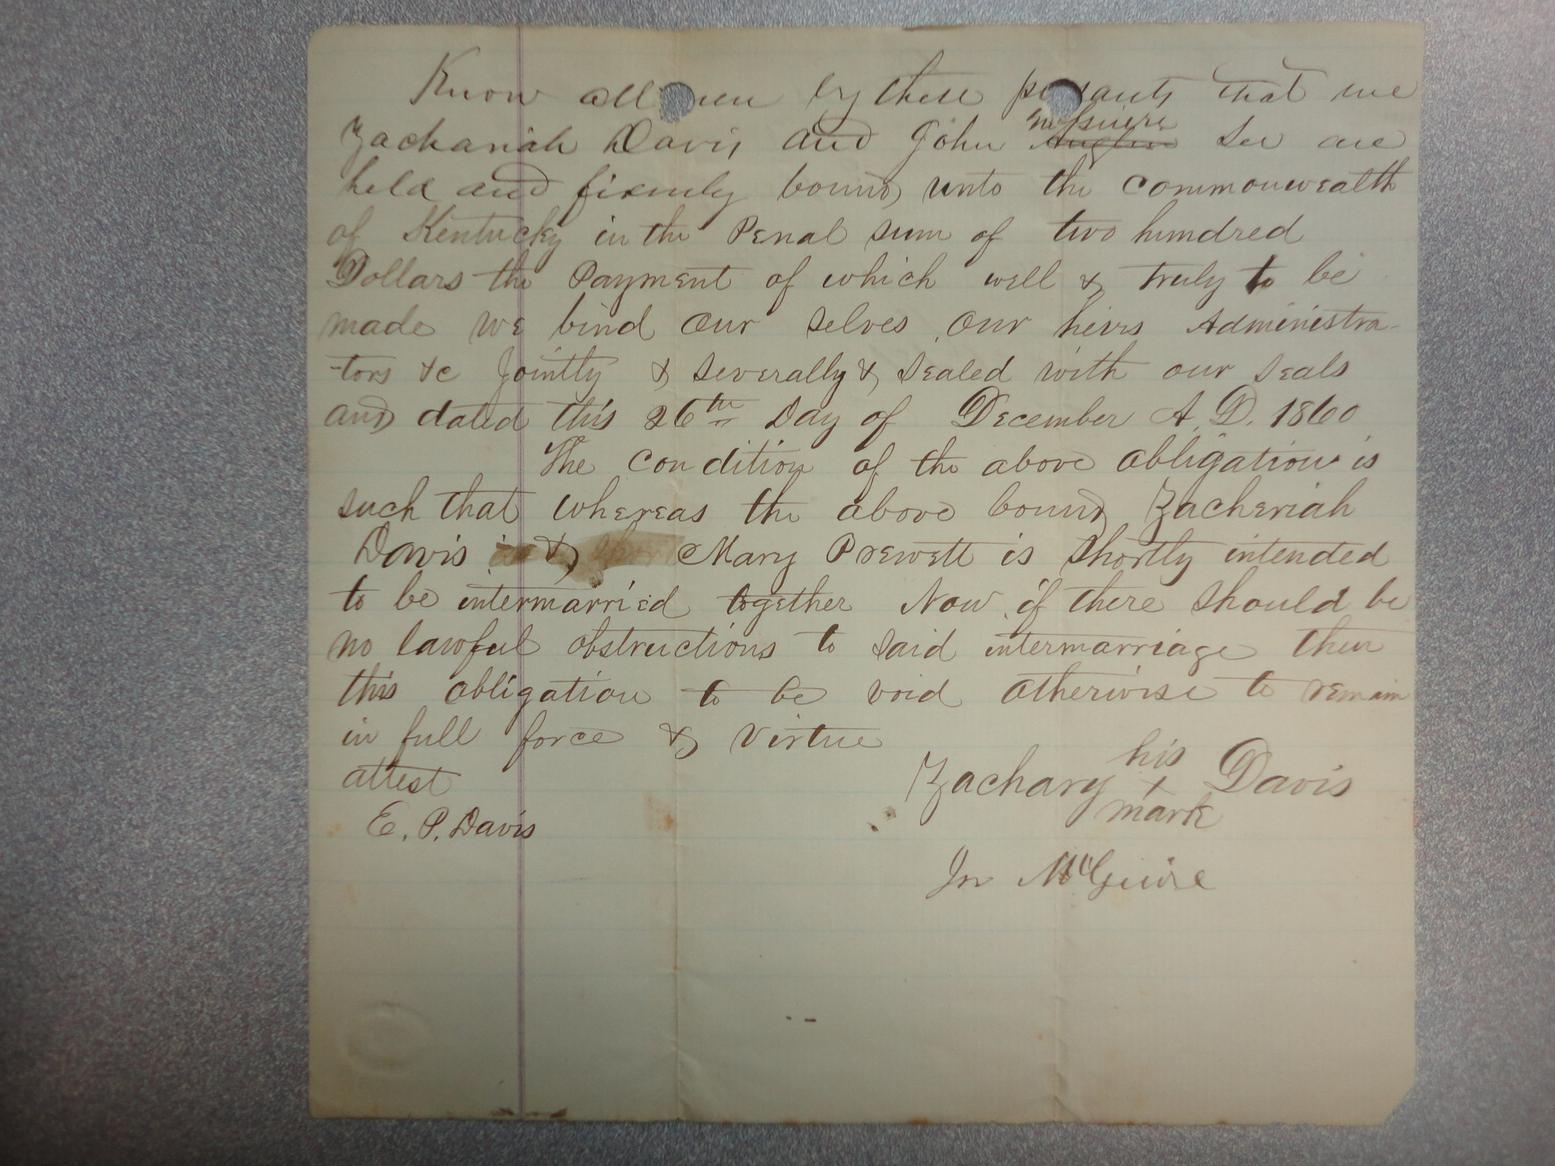 Know all men by these presants that we
Zachariah Davis and John McGuire Sen are
held and firmly bound unto the commonwealth
of Kentucky in the Penal sum of two hundred
Dollars the Payment of which well & truly to be
made we bind our selves our heirs Administra-
-tors &c Jointly & severally & sealed with our seals
and dated this 26th Day of December A. D. 1860
The condition of the above obligation is
such that whereas the above bound Zacheriah
Davis & Mary Prewett is shortly intended
to be intermarried together Now if there should be
no lawful obstructions to said intermarriage then
this obligation to be void otherwise to remain
in full force & virtue
attest
Zachary his x mark Davis
E. P. Davis
Jn McGuire